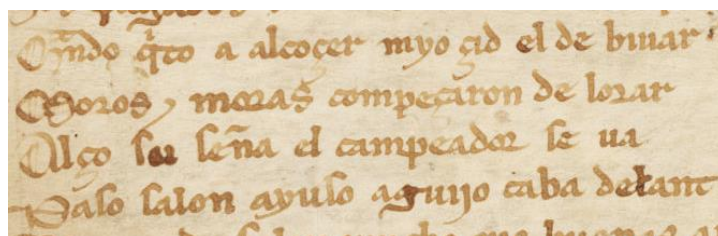 Qⁿdo q̃to a alcoçer myo çid el de biuar
Moros ⁊ moras compeçaron de lorar
Alço su seña el campeador se ua
Paso salon ayuso aguijo caba delant